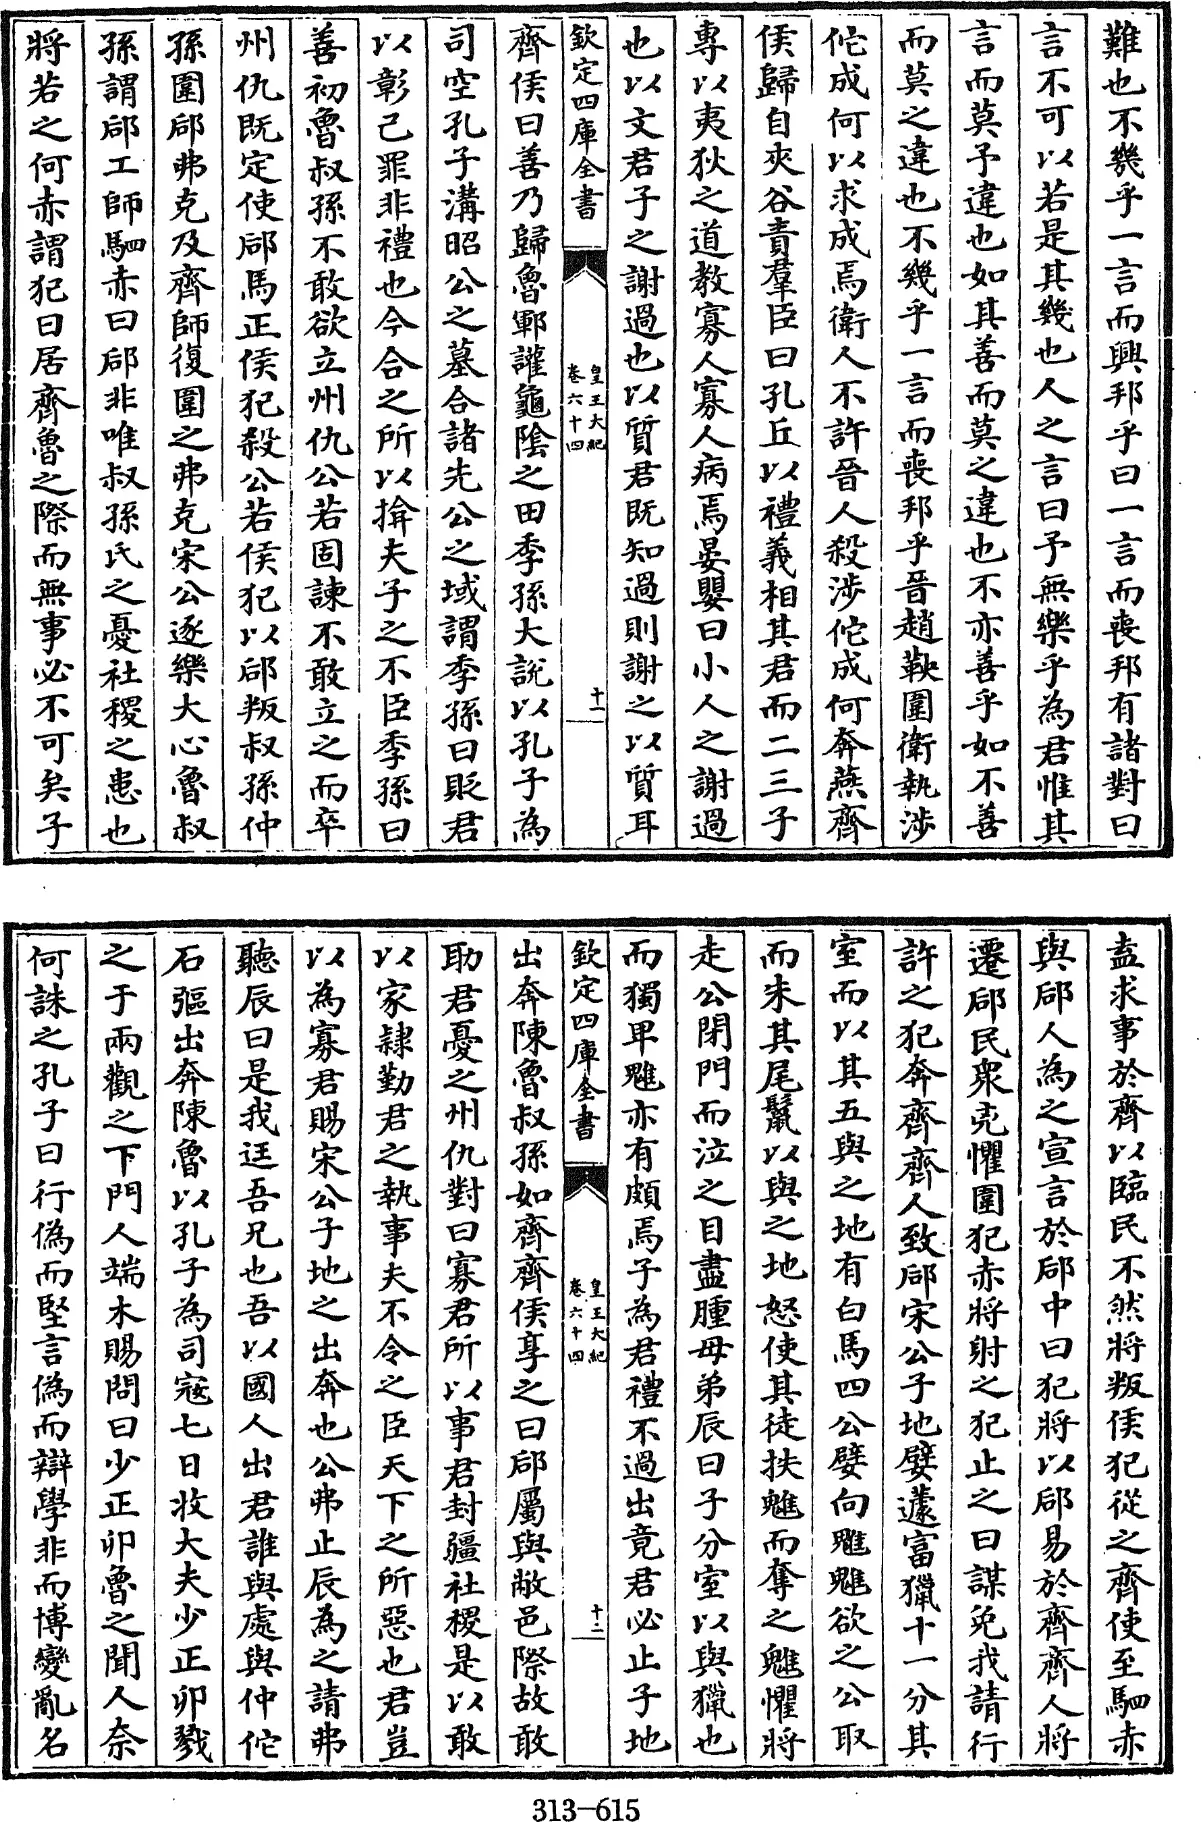 難也不幾乎一言而興邦乎曰一言而喪邦有諸對曰
言不可以若是其幾也人之言曰予無樂乎為君惟其
言而莫予違也如其善而莫之違也不亦善乎如不善
而莫之違也不幾乎一言而喪邦乎晉趙鞅圍衛執涉
佗成何以求成焉衛人不許晉人殺涉佗成何奔燕齊
侯歸自夾谷責羣臣曰孔丘以禮義相其君而二三子
專以夷狄之道教寡人寡人病焉晏嬰曰小人之謝過
也以文君子之謝過也以質君既知過則謝之以質耳
欽定四庫全書
皇王大紀
卷六十四
十一
齊侯曰善乃歸魯鄆讙龜陰之田季孫大說以孔子為
司空孔子溝昭公之墓合諸先公之域謂季孫曰貶君
以彰己罪非禮也今合之所以揜夫子之不臣季孫曰
善初魯叔孫不敢欲立州仇公若固諫不敢立之而卒
州仇既定使郈馬正侯犯殺公若侯犯以郈叛叔孫仲
孫圍郈弗克及齊師復圍之弗克宋公逐樂大心魯叔
孫謂郈工師駟赤曰郈非唯叔孫氏之憂社稷之患也
將若之何赤謂犯曰居齊魯之際而無事必不可矣子
盍求事於齊以臨民不然將叛侯犯從之齊使至駟赤
與郈人為之宣言於郈中曰犯將以郈易於齊齊人將
遷郈民衆兇懼圍犯赤將射之犯止之曰謀免我請行
許之犯奔齊齊人致郈宋公子地嬖蘧富獵十一分其
室而以其五與之地有白馬四公嬖向魋魋欲之公取
而朱其尾鬣以與之地怒使其徒抶魋而奪之魋懼將
走公閉門而泣之目盡腫母弟辰曰子分室以與獵也
而獨卑魋亦有頗焉子為君禮不過出竟君必止子地
欽定四庫全書
皇王大紀
卷六十四
十二
出奔陳魯叔孫如齊齊侯享之曰郈屬與敝邑際故敢
助君憂之州仇對曰寡君所以事君封疆社稷是以敢
以家隸勤君之執事夫不令之臣天下之所惡也君豈
以為寡君賜宋公子地之出奔也公弗止辰為之請弗
聽辰曰是我迋吾兄也吾以國人出君誰與處與仲佗
石彄出奔陳魯以孔子為司寇七日收大夫少正卯戮
之于兩觀之下門人端木賜問曰少正卯魯之聞人奈
何誅之孔子曰行偽而堅言偽而辯學非而博變亂名
313-615